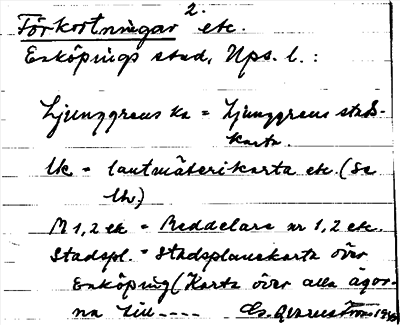 2.
Förkortningar etc.
Enköpings stad, Ups. l. :
Ljunggrens ka = Ljunggrens stads-
karta.
lk = lantmäterikarta etc. (Se
Uh)
M 1, 2 etc = Meddelare nr 1, 2 etc.
Stadspl. = Stadsplanekarta över
Enköping (Karta över alla ägor-
na till ----